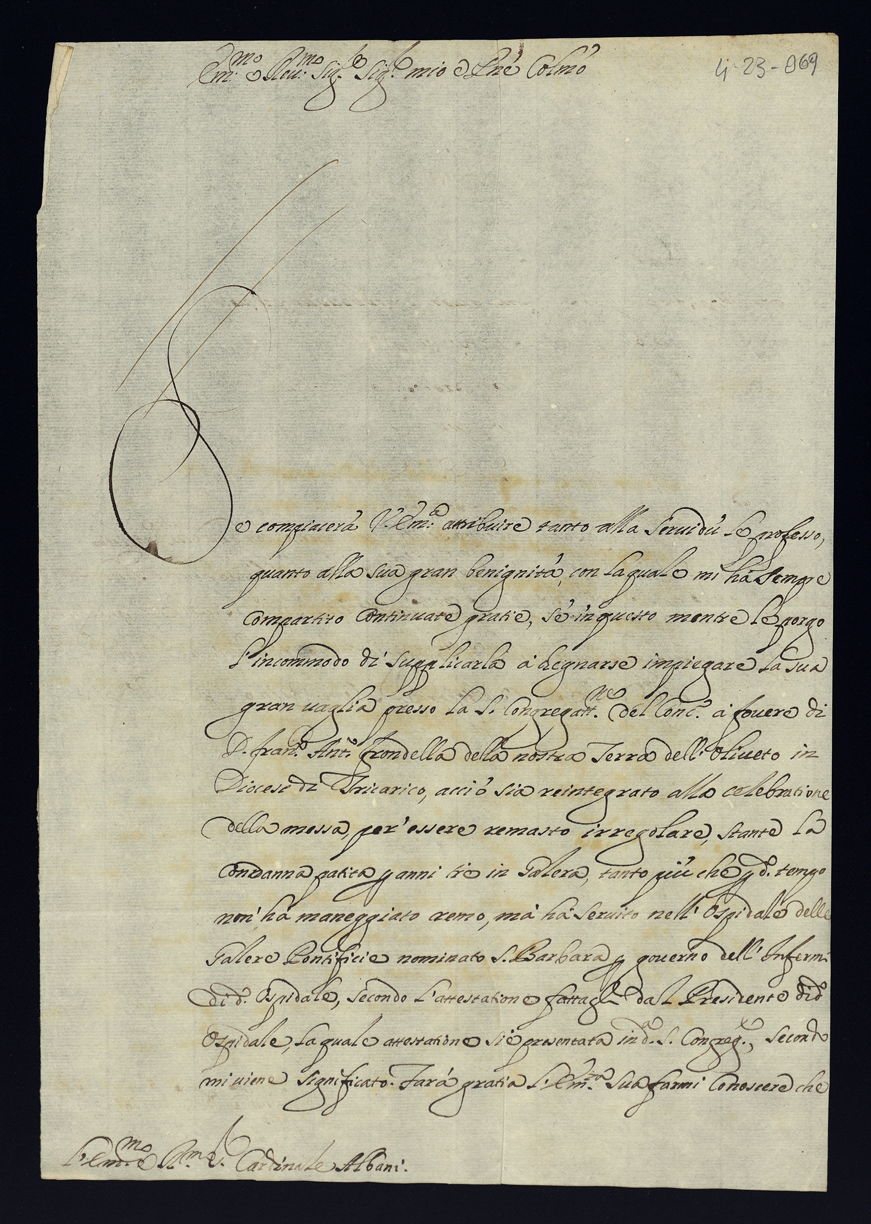 Em.mo e Reu.mo Sig.r Sig.r mio e Pne Colmo
4-23-069
Se compiacerà V. Em.a attribuire tanto alla seruidù le professo,
quanto alla sua gran benignità, con la quale mi hà sempre
compartito continuate gratie, se in questo mentre le porgo
l'incommodo di supplicarla à degnarse impiegare la sua
gran vaglia presso la S. Congregatt.ne del Conc.o à fauere di
D. fran.co Ant.o frondella della nostra Terra dell'Oliueto in
Diocesi di Tricarico, acciò sia reintegrato alla celebratione
della messa, per essere remasto irregolare, stante la
condanna patita p anni tre in Galera, tanto più che p d.o tempo
non hà maneggiato remo, mà hà seruito nell'Ospidale delle
Galere Pontificie nominato S. Barbara p gouerno dell'Infermi
di d.o Ospidale, secondo l'attestatione fattagli dal Presidente di d.o
Ospidale, la quale attestatione si è presentata in d.a S. Congreg.e, secondo
mi viene significato. Farà gratia l'Em.za sua farmi conoscere che
L'Em.mo e R.mo S. Cardinale Albani.